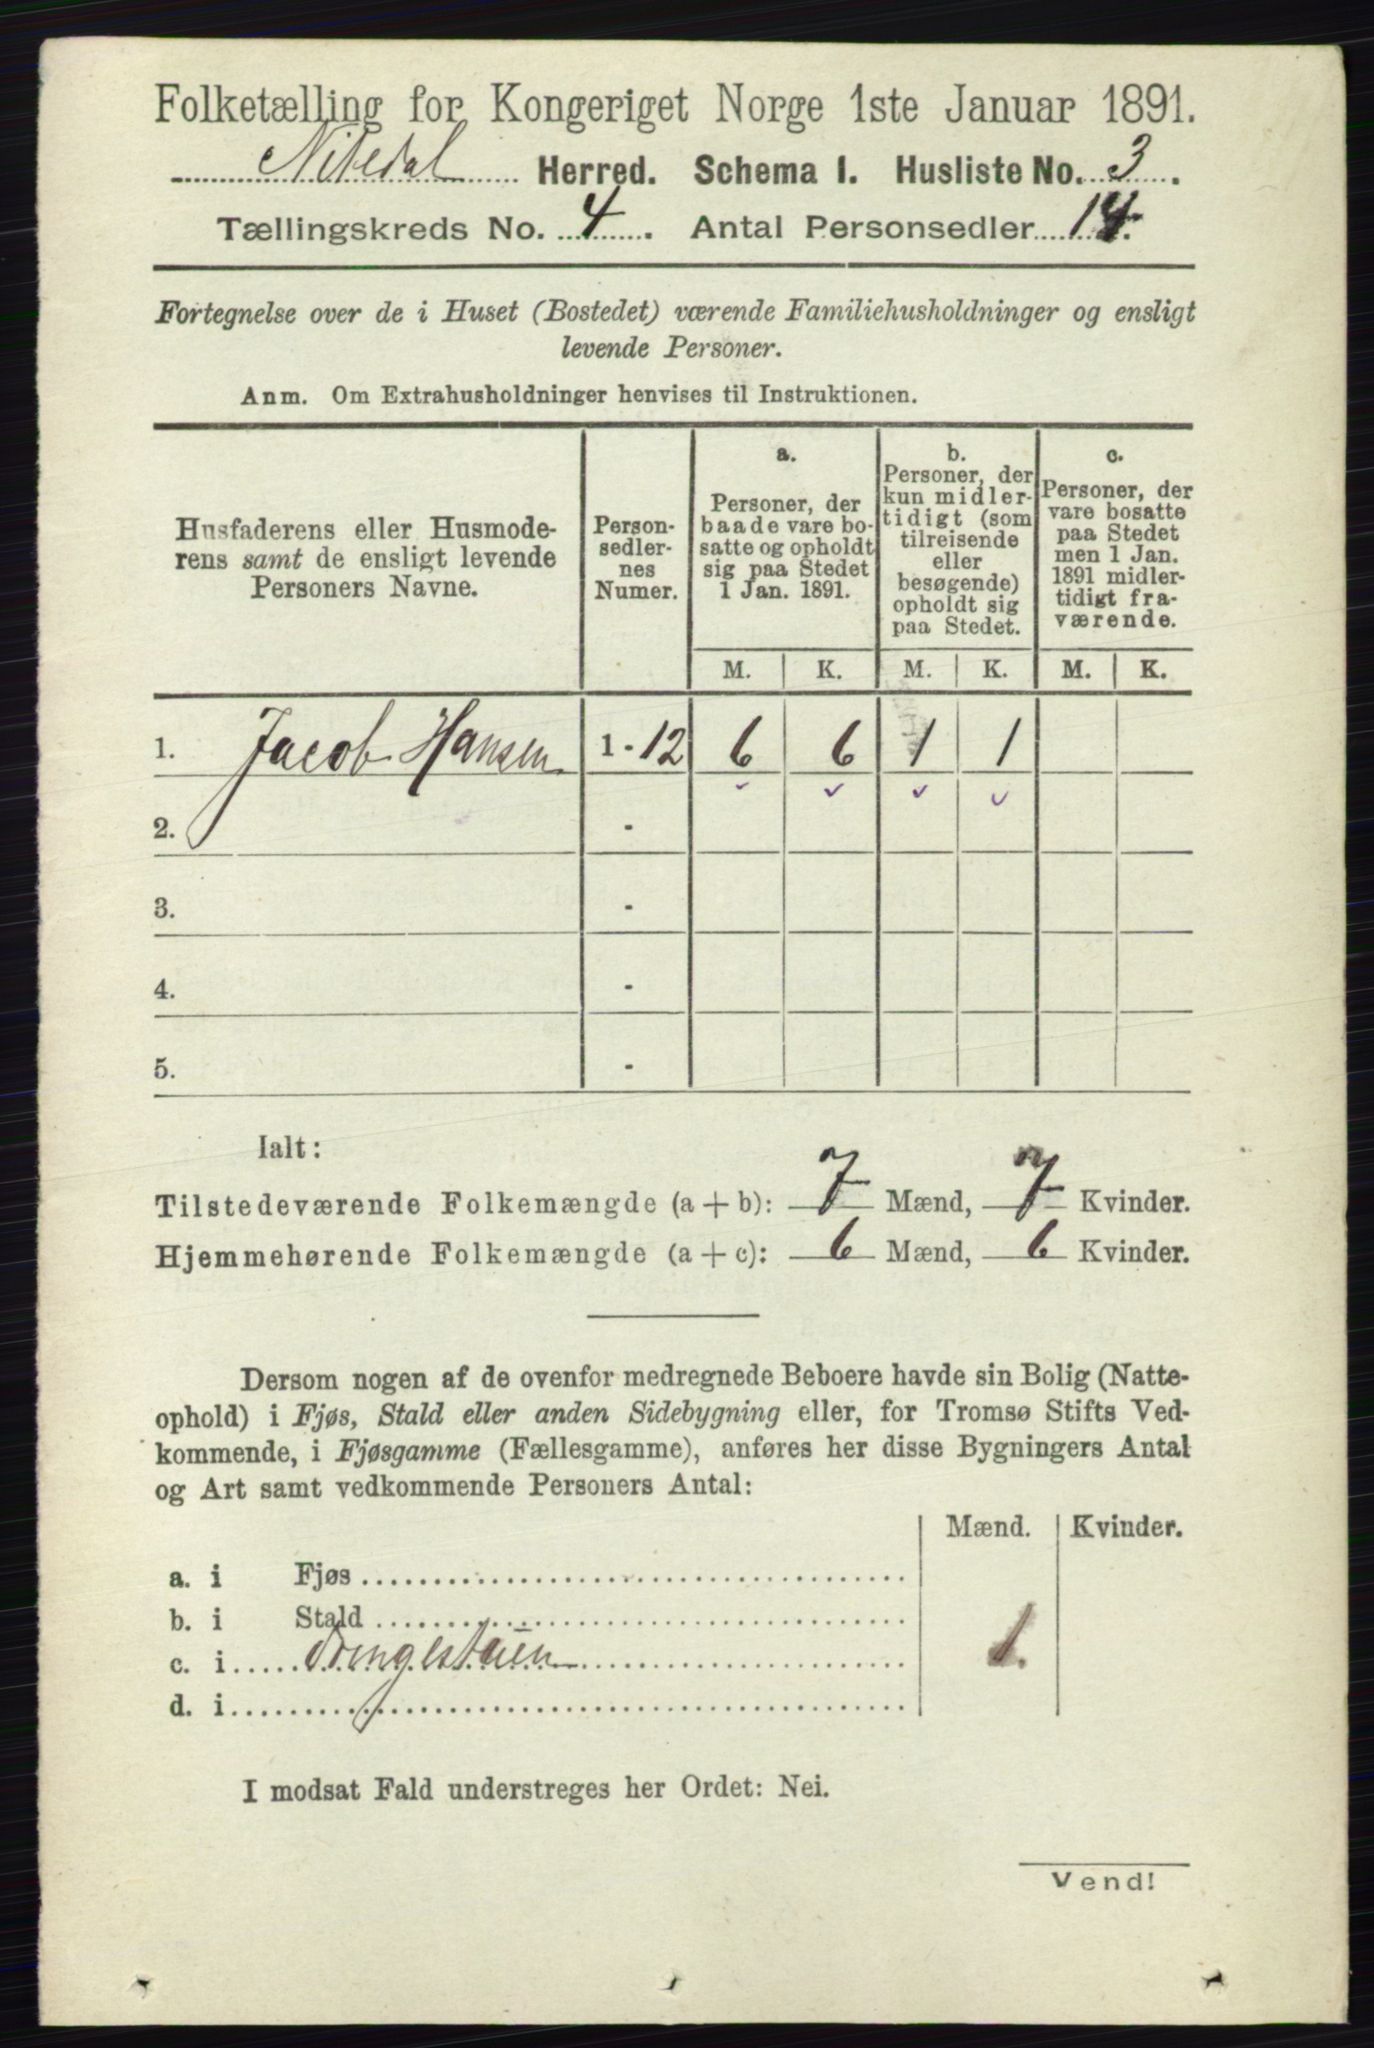 Folketælling for Kongeriget Norge 1ste Januar 1891.
Nitedal Herred. Schema I. Husliste No. 3.
Tællingskreds No. 4. Antal Personsedler 14.
Fortegnelse over de i Huset (Bostedet) værende Familiehusholdninger og ensligt
levende Personer.
Anm. Om Extrahusholdninger henvises til Instruktionen.
Husfaderens eller Husmode-
rens samt de ensligt levende
Personers Navne.
Person-
sedler-
nes
Numer.
a.
Personer, der
baade vare bo-
satte og opholdt
sig paa Stedet
1 Jan. 1891.
b.
Personer, der
kun midler-
tidigt (som
tilreisende
eller
besøgende)
opholdt sig
paa Stedet.
c.
Personer, der
vare bosatte
paa Stedet
men 1 Jan.
1891 midler-
tidigt fra-
værende.
M. K. M. K. M. K.
1. Jacob Hansen 1 - 12 6 6 1 1
2. -
3. -
4. -
5. -
Ialt:
Tilstedeværende Folkemængde (a + b): 7 Mænd, 7 Kvinder.
Hjemmehørende Folkemængde (a + c): 6 Mænd, 6 Kvinder.
Dersom nogen af de ovenfor medregnede Beboere havde sin Bolig (Natte-
ophold) i Fjøs, Stald eller anden Sidebygning eller, for Tromsø Stifts Ved-
kommende, i Fjøsgamme (Fællesgamme), anføres her disse Bygningers Antal
og Art samt vedkommende Personers Antal:
Mænd. Kvinder.
a. i Fjøs
b. i Stald
c. i Drengestuen 1.
d. i
I modsat Fald understreges her Ordet: Nei.
Vend!